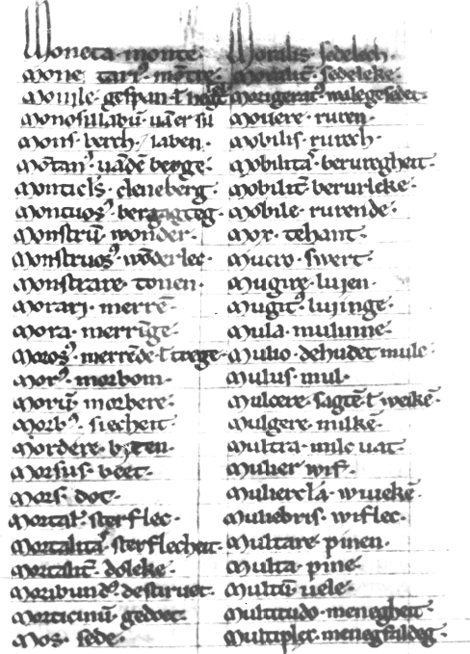 Moneta · monte ·
Mone tari⁹ · mōtre ·
Monile · gespan · ł
Monosillabū · uā er si
Mons · berch · laben ·
Mōtan⁹ · uādē berge ·
Monticl's · cleneberg ·
Montuos⁹ · bergagteg ·
Monstrū · wonder ·
Monstruos⁹ · wōderlec ·
Monstrare · tonen ·
Morari · merrē ·
Mora · merrīge ·
Moros⁹ · merrēde · ł trege ·
Mor⁹ · morbom ·
Morū · morbere ·
Morb⁹ · siecheit ·
Mordere · biten ·
Morsus · beet ·
Mors · dot ·
Mortal' · sterflec ·
Mortalitā · sterflecheit ·
Mortalit̄ · doleke ·
Moribund⁹ · destiruet ·
Morticinū · gedoet ·
Mos · sede ·
Moralis · sedelech ·
Moralit̄ · sedeleke ·
Morigerat⁹ · walegesedet ·
Mouere · ruren ·
Mobilis · rurech ·
Mobilitā · beruregheit ·
Mobilit̄ · berurleke ·
Mobile · rurende ·
Mox · tehant ·
Mucro · swert ·
Mugire · luien ·
Mugit⁹ · luijnge ·
Mula · mulinne ·
Mulio · dehudet mule ·
Mulus · mul ·
Mulcere · sagtē ł weikē ·
Mulgere · milkē ·
Multra · milc uat ·
Mulier wif ·
Muliercl'a · wiuekē ·
Muliebris · wiflec ·
Multare · pinen ·
Multa · pine ·
Multū · uele ·
Multitudo · menegheit ·
Multiplex · menegfuldeg ·